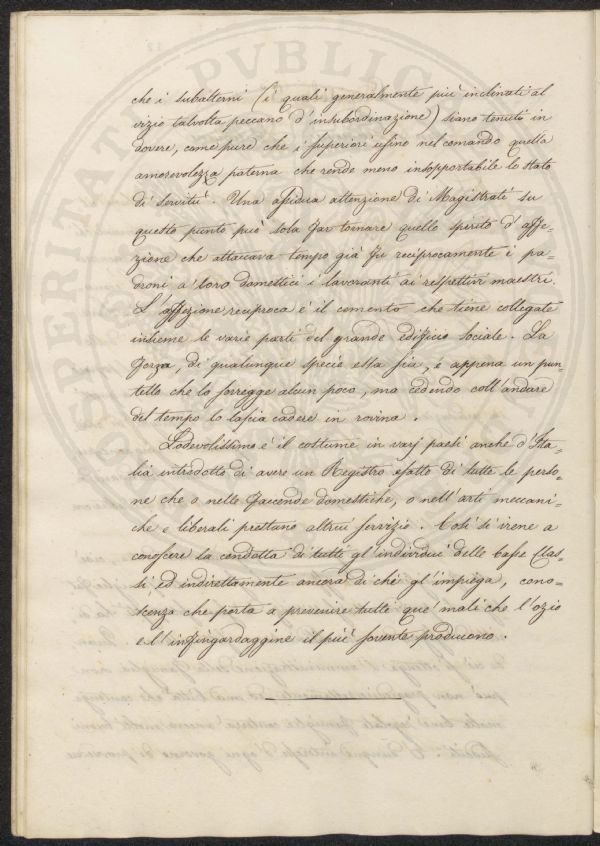 che i subalterni (i quali generalmente più inclinati al
vizio talvolta peccano d'insubordinazione) siano tenuti in
dovere, come pure che i superiori usino nel comando quella
amorevolezza paterna che rende meno insopportabile lo stato
di servitù. Una assidua attenzione de' Magistrati su
questo punto può sola far tornare quello spirito d'affe-
zione che attaccava tempo già fu reciprocamente i pa-
droni a' loro domestici i lavoranti ai rispettivi maestri.
L'affezione reciproca è il cemento che tiene collegate
insieme le varie parti del grande edifizio sociale. La
forza, di qualunque specie essa sia, è appena un pun-
tello che lo sorregge alcun poco, ma cedendo coll'andare
del tempo lo lascia cadere in rovina.
Lodevolissimo è il costume in varj paesi anche d'Ita-
lia introdotto di avere un Registro esatto di tutte le perso-
ne che o nelle faccende domestiche, o nell'arti meccani-
che e liberali prestano altrui servizio. Così si viene a
conoscere la condotta di tutti gl'individui delle basse Clas-
si, ed indirettamente ancora di chi gl'impiega, cono-
scenza che porta a prevenire tutti que' mali che l'ozio
e l'infingardaggine il più sovente producono.